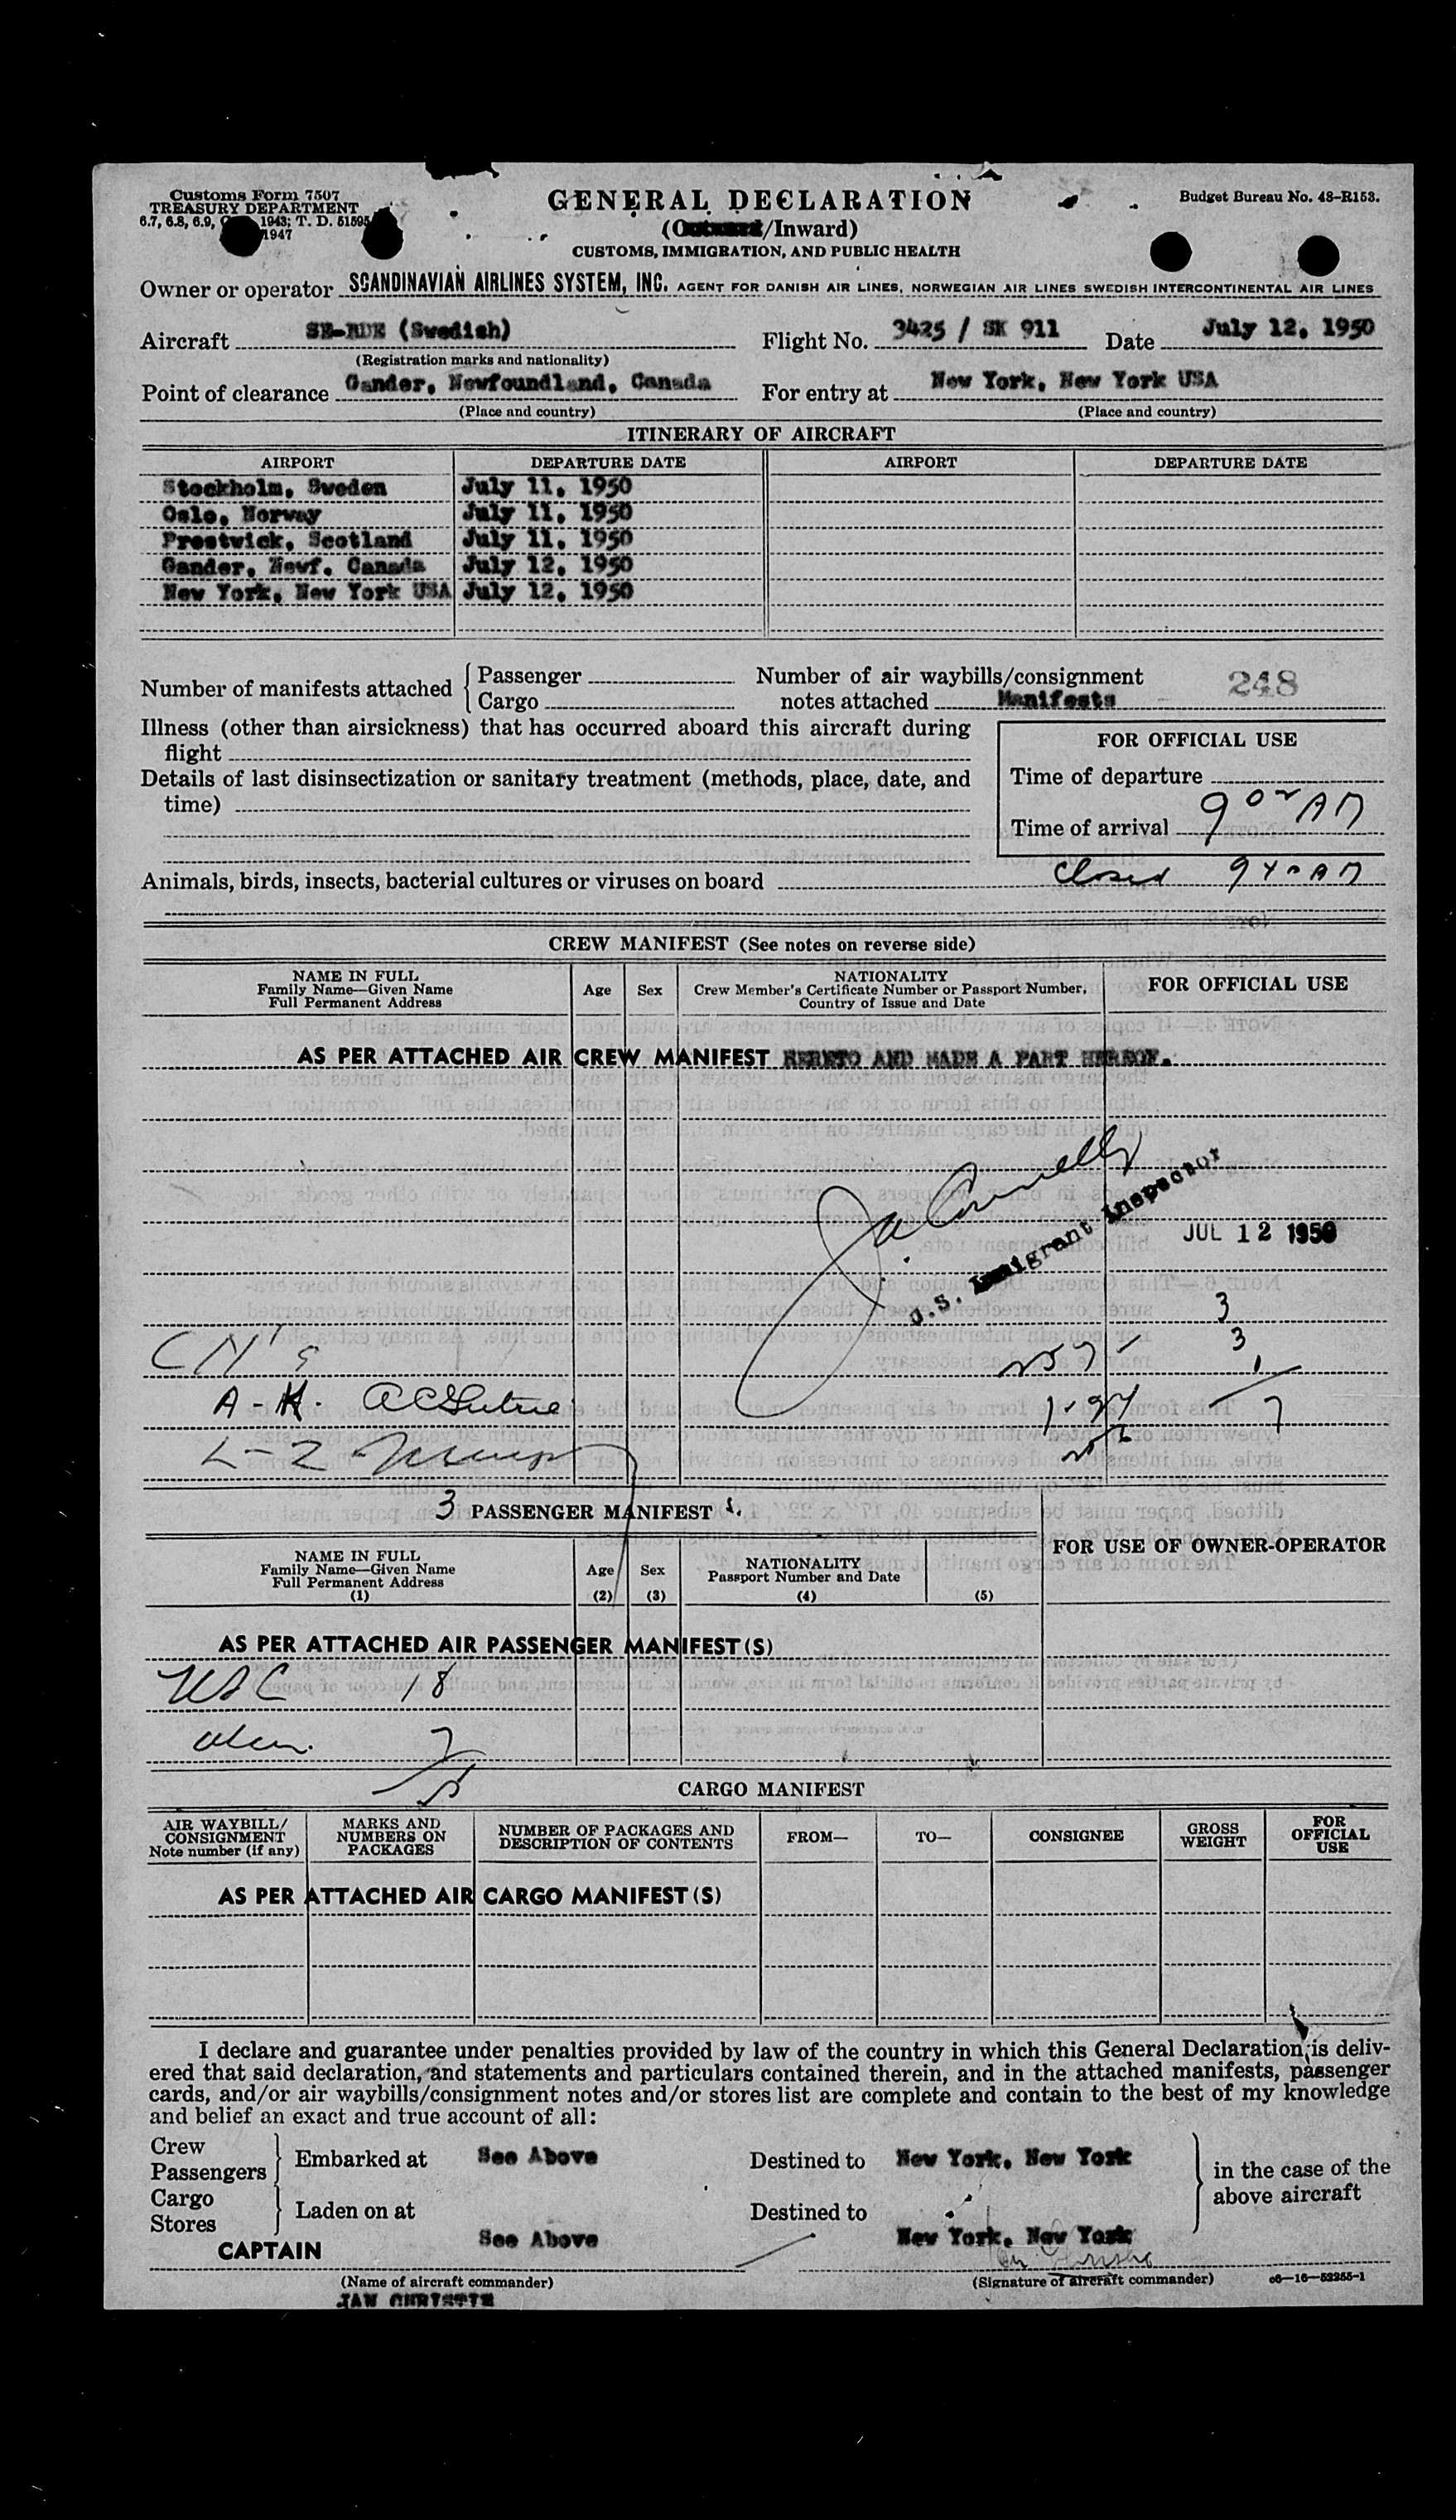 Customs Form 7507
TREASURY DEPARTMENT
6.7, 6.8, 6.9, 1943; T. D. 51595
1947
GENERAL DECLARATION
(Outward/Inward)
CUSTOMS, IMMIGRATION, AND PUBLIC HEALTH
Budget Bureau No. 48-R153.
Owner or operator SCANDINAVIAN AIRLINES SYSTEM, INC. AGENT FOR DANISH AIR LINES, NORWEGIAN AIR LINES SWEDISH INTERCONTINENTAL AIR LINES
Aircraft SE-BDE (Swedish) Flight No. 3425 / SK 911 Date July 12, 1950
(Registration marks and nationality)
Point of clearance Gander, Newfoundland, Canada For entry at New York, New York USA
(Place and country) (Place and country)
ITINERARY OF AIRCRAFT
AIRPORT DEPARTURE DATE AIRPORT DEPARTURE DATE
Stockholm, Sweden July 11, 1950
Oslo, Norway July 11, 1950
Prestwick, Scotland July 11, 1950
Gander, Newf. Canada July 12, 1950
New York, New York USA July 12, 1950
Number of manifests attached { Passenger
Cargo
Number of air waybills/consignment
notes attached Manifests
248
Illness (other than airsickness) that has occurred aboard this aircraft during
flight
Details of last disinsectization or sanitary treatment (methods, place, date, and
time)
FOR OFFICIAL USE
Time of departure
Time of arrival 9 02 AM
Animals, birds, insects, bacterial cultures or viruses on board
Closed 940 AM
CREW MANIFEST (See notes on reverse side)
NAME IN FULL
Family Name—Given Name
Full Permanent Address
Age Sex
NATIONALITY
Crew Member's Certificate Number or Passport Number,
Country of Issue and Date
FOR OFFICIAL USE
AS PER ATTACHED AIR CREW MANIFEST HERETO AND MADE A PART HEREOF.
U.S. Immigrant Inspector
JUL 12 1950
3
3
1
7
3 PASSENGER MANIFEST
NAME IN FULL
Family Name—Given Name
Full Permanent Address
(1)
Age
(2)
Sex
(3)
NATIONALITY
Passport Number and Date
(4)
(5)
FOR USE OF OWNER-OPERATOR
AS PER ATTACHED AIR PASSENGER MANIFEST(S)
USC 18
Alien 7
CARGO MANIFEST
AIR WAYBILL/
CONSIGNMENT
Note number (if any)
MARKS AND
NUMBERS ON
PACKAGES
NUMBER OF PACKAGES AND
DESCRIPTION OF CONTENTS
FROM—
TO—
CONSIGNEE
GROSS
WEIGHT
FOR
OFFICIAL
USE
AS PER ATTACHED AIR CARGO MANIFEST(S)
I declare and guarantee under penalties provided by law of the country in which this General Declaration is deliv-
ered that said declaration, and statements and particulars contained therein, and in the attached manifests, passenger
cards, and/or air waybills/consignment notes and/or stores list are complete and contain to the best of my knowledge
and belief an exact and true account of all:
Crew
Passengers } Embarked at See Above Destined to New York, New York
Cargo
Stores } Laden on at See Above Destined to New York, New York
in the case of the
above aircraft
CAPTAIN
(Name of aircraft commander) (Signature of aircraft commander) c6—16—52255-1
JAN CHRISTIE